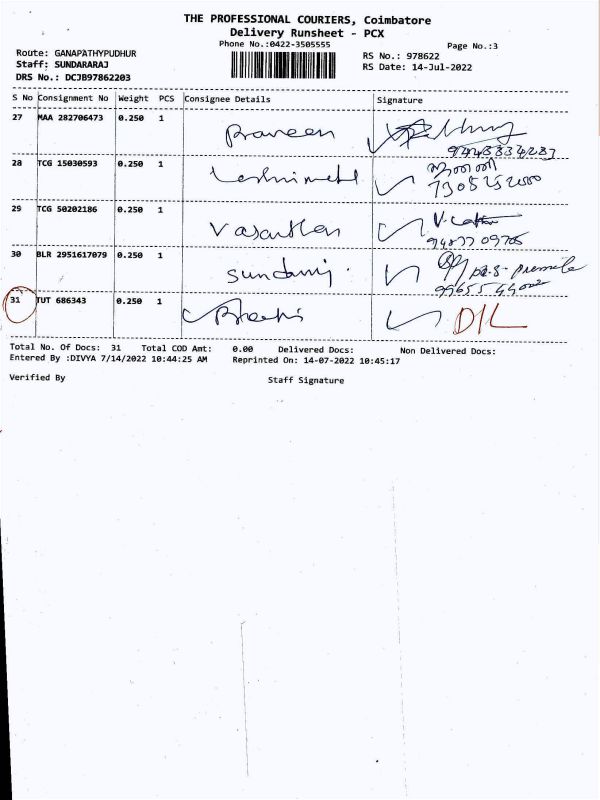 THE PROFESSIONAL COURIERS, Coimbatore
Delivery Runsheet - PCX
Phone No.:0422-3505555
Page No.:3
Route: GANAPATHYPUDHUR
RS No.: 978622
Staff: SUNDARARAJ
RS Date: 14-Jul-2022
DRS No.: DCJB97862203
S No Consignment No Weight PCS Consignee Details Signature
27 MAA 282706473 0.250 1 Praveen
28 TCG 15030593 0.250 1
29 TCG 50202186 0.250 1 Vasanthan
9487709705
30 BLR 2951617079 0.250 1 Sundarraj
31 TUT 686343 0.250 1 D/L
Total No. Of Docs: 31 Total COD Amt: 0.00 Delivered Docs: Non Delivered Docs:
Entered By :DIVYA 7/14/2022 10:44:25 AM Reprinted On: 14-07-2022 10:45:17
Verified By Staff Signature